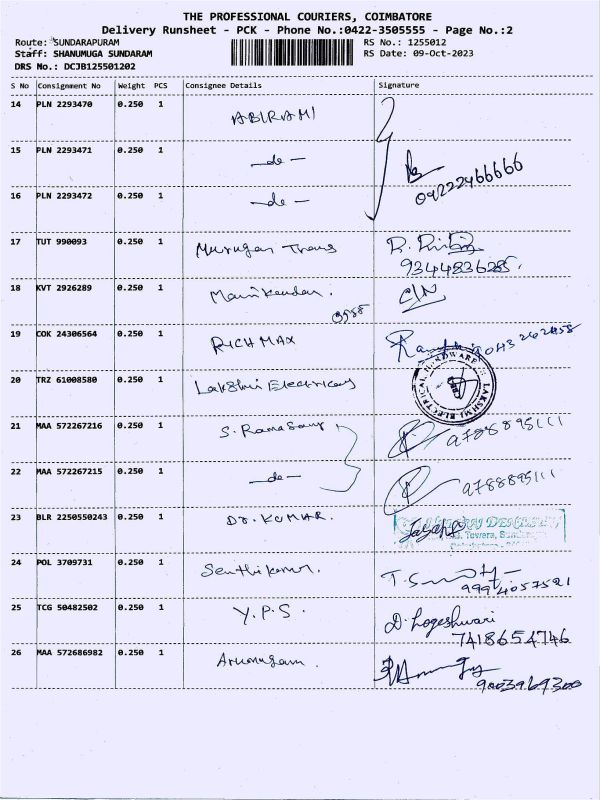 THE PROFESSIONAL COURIERS, COIMBATORE
Delivery Runsheet - PCK - Phone No.:0422-3505555 - Page No.:2
Route: SUNDARAPURAM RS No.: 1255012
Staff: SHANUMUGA SUNDARAM RS Date: 09-Oct-2023
DRS No.: DCJB125501202
S No Consignment No Weight PCS Consignee Details Signature
14 PLN 2293470 0.250 1 ABIRAMI
15 PLN 2293471 0.250 1 -do-
09222466666
16 PLN 2293472 0.250 1 -do-
17 TUT 990093 0.250 1 Murugan Trans
9344836285.
18 KVT 2926289 0.250 1 Manikandan.
0958
19 COK 24306564 0.250 1 RICHMAX
20 TRZ 61008580 0.250 1 Lakshmi Electricals
ELECTRICAL HARDWARE LAKSHMI
21 MAA 572267216 0.250 1 S. Ramasamy 9788895111
22 MAA 572267215 0.250 1 -do- 9788895111
23 BLR 2250550243 0.250 1 Dr. KUMAR.
Towers,
24 POL 3709731 0.250 1 Senthilkumar.
9994057521
25 TCG 50482502 0.250 1 Y.P.S. D. Logeshwari
7418654746
26 MAA 572686982 0.250 1 Arumugam.
9003969300